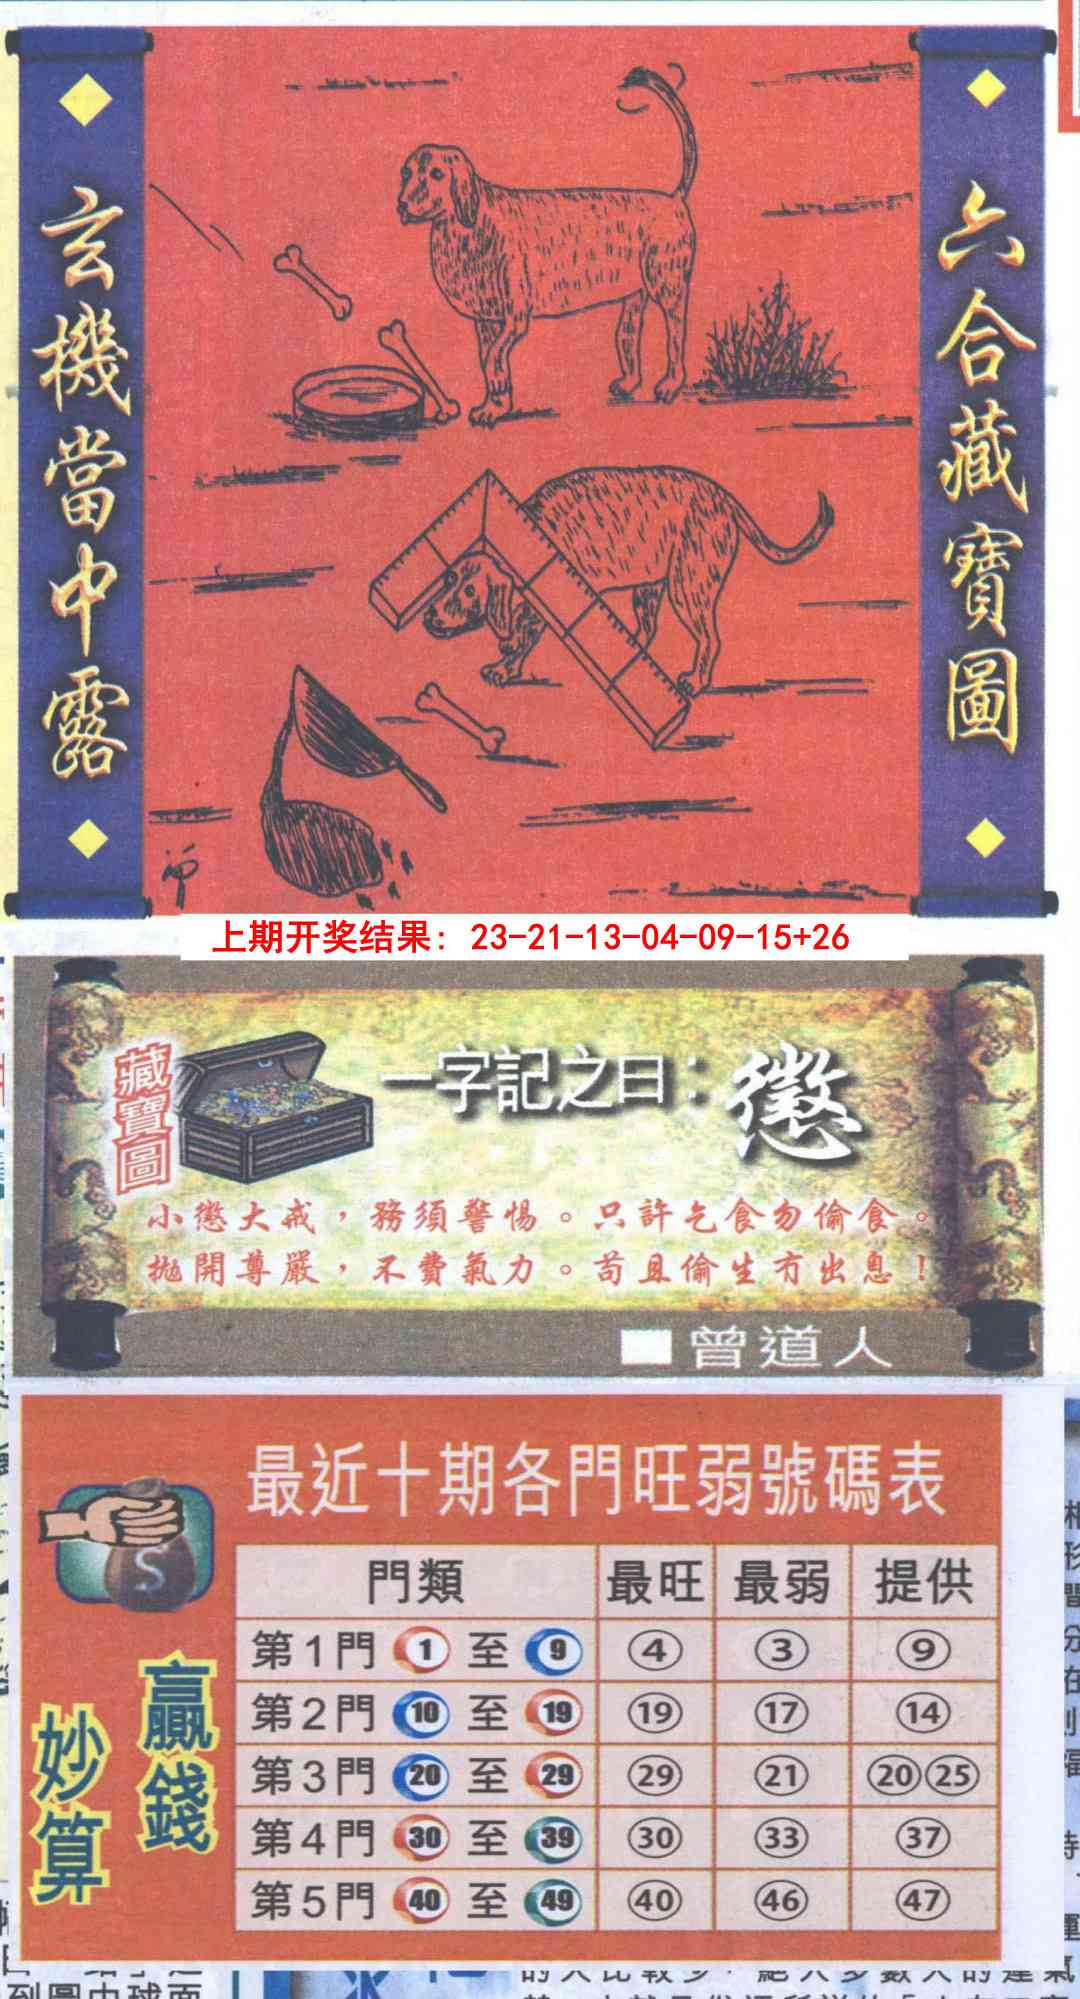 六合藏寶圖
玄機當中露
上期开奖结果: 23-21-13-04-09-15+26
藏寶圖
一字記之曰：懲
小懲大戒，務須警惕。只許乞食勿偷食。
拋開尊嚴，不費氣力。苟且偷生冇出息！
曾道人
最近十期各門旺弱號碼表
贏錢
妙算
$
門類 最旺 最弱 提供
第1門 1 至 9 4 3 9
第2門 10 至 19 19 17 14
第3門 20 至 29 29 21 20 25
第4門 30 至 39 30 33 37
第5門 40 至 49 40 46 47